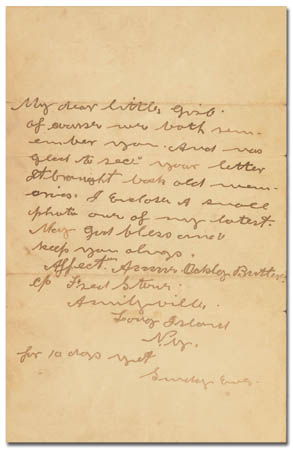 My dear little Girl.
of course we both rem-
ember you. And was
glad to rec. your letter
It brought back old mem-
ories. I Enclose A small
photo one of my latest.
May God bless and
keep you always.
Affect. Annie Oakley Butler
c/o Fred Stone
Amityville
Long Island
N.Y.
for 10 days yet
Sunday Eve.